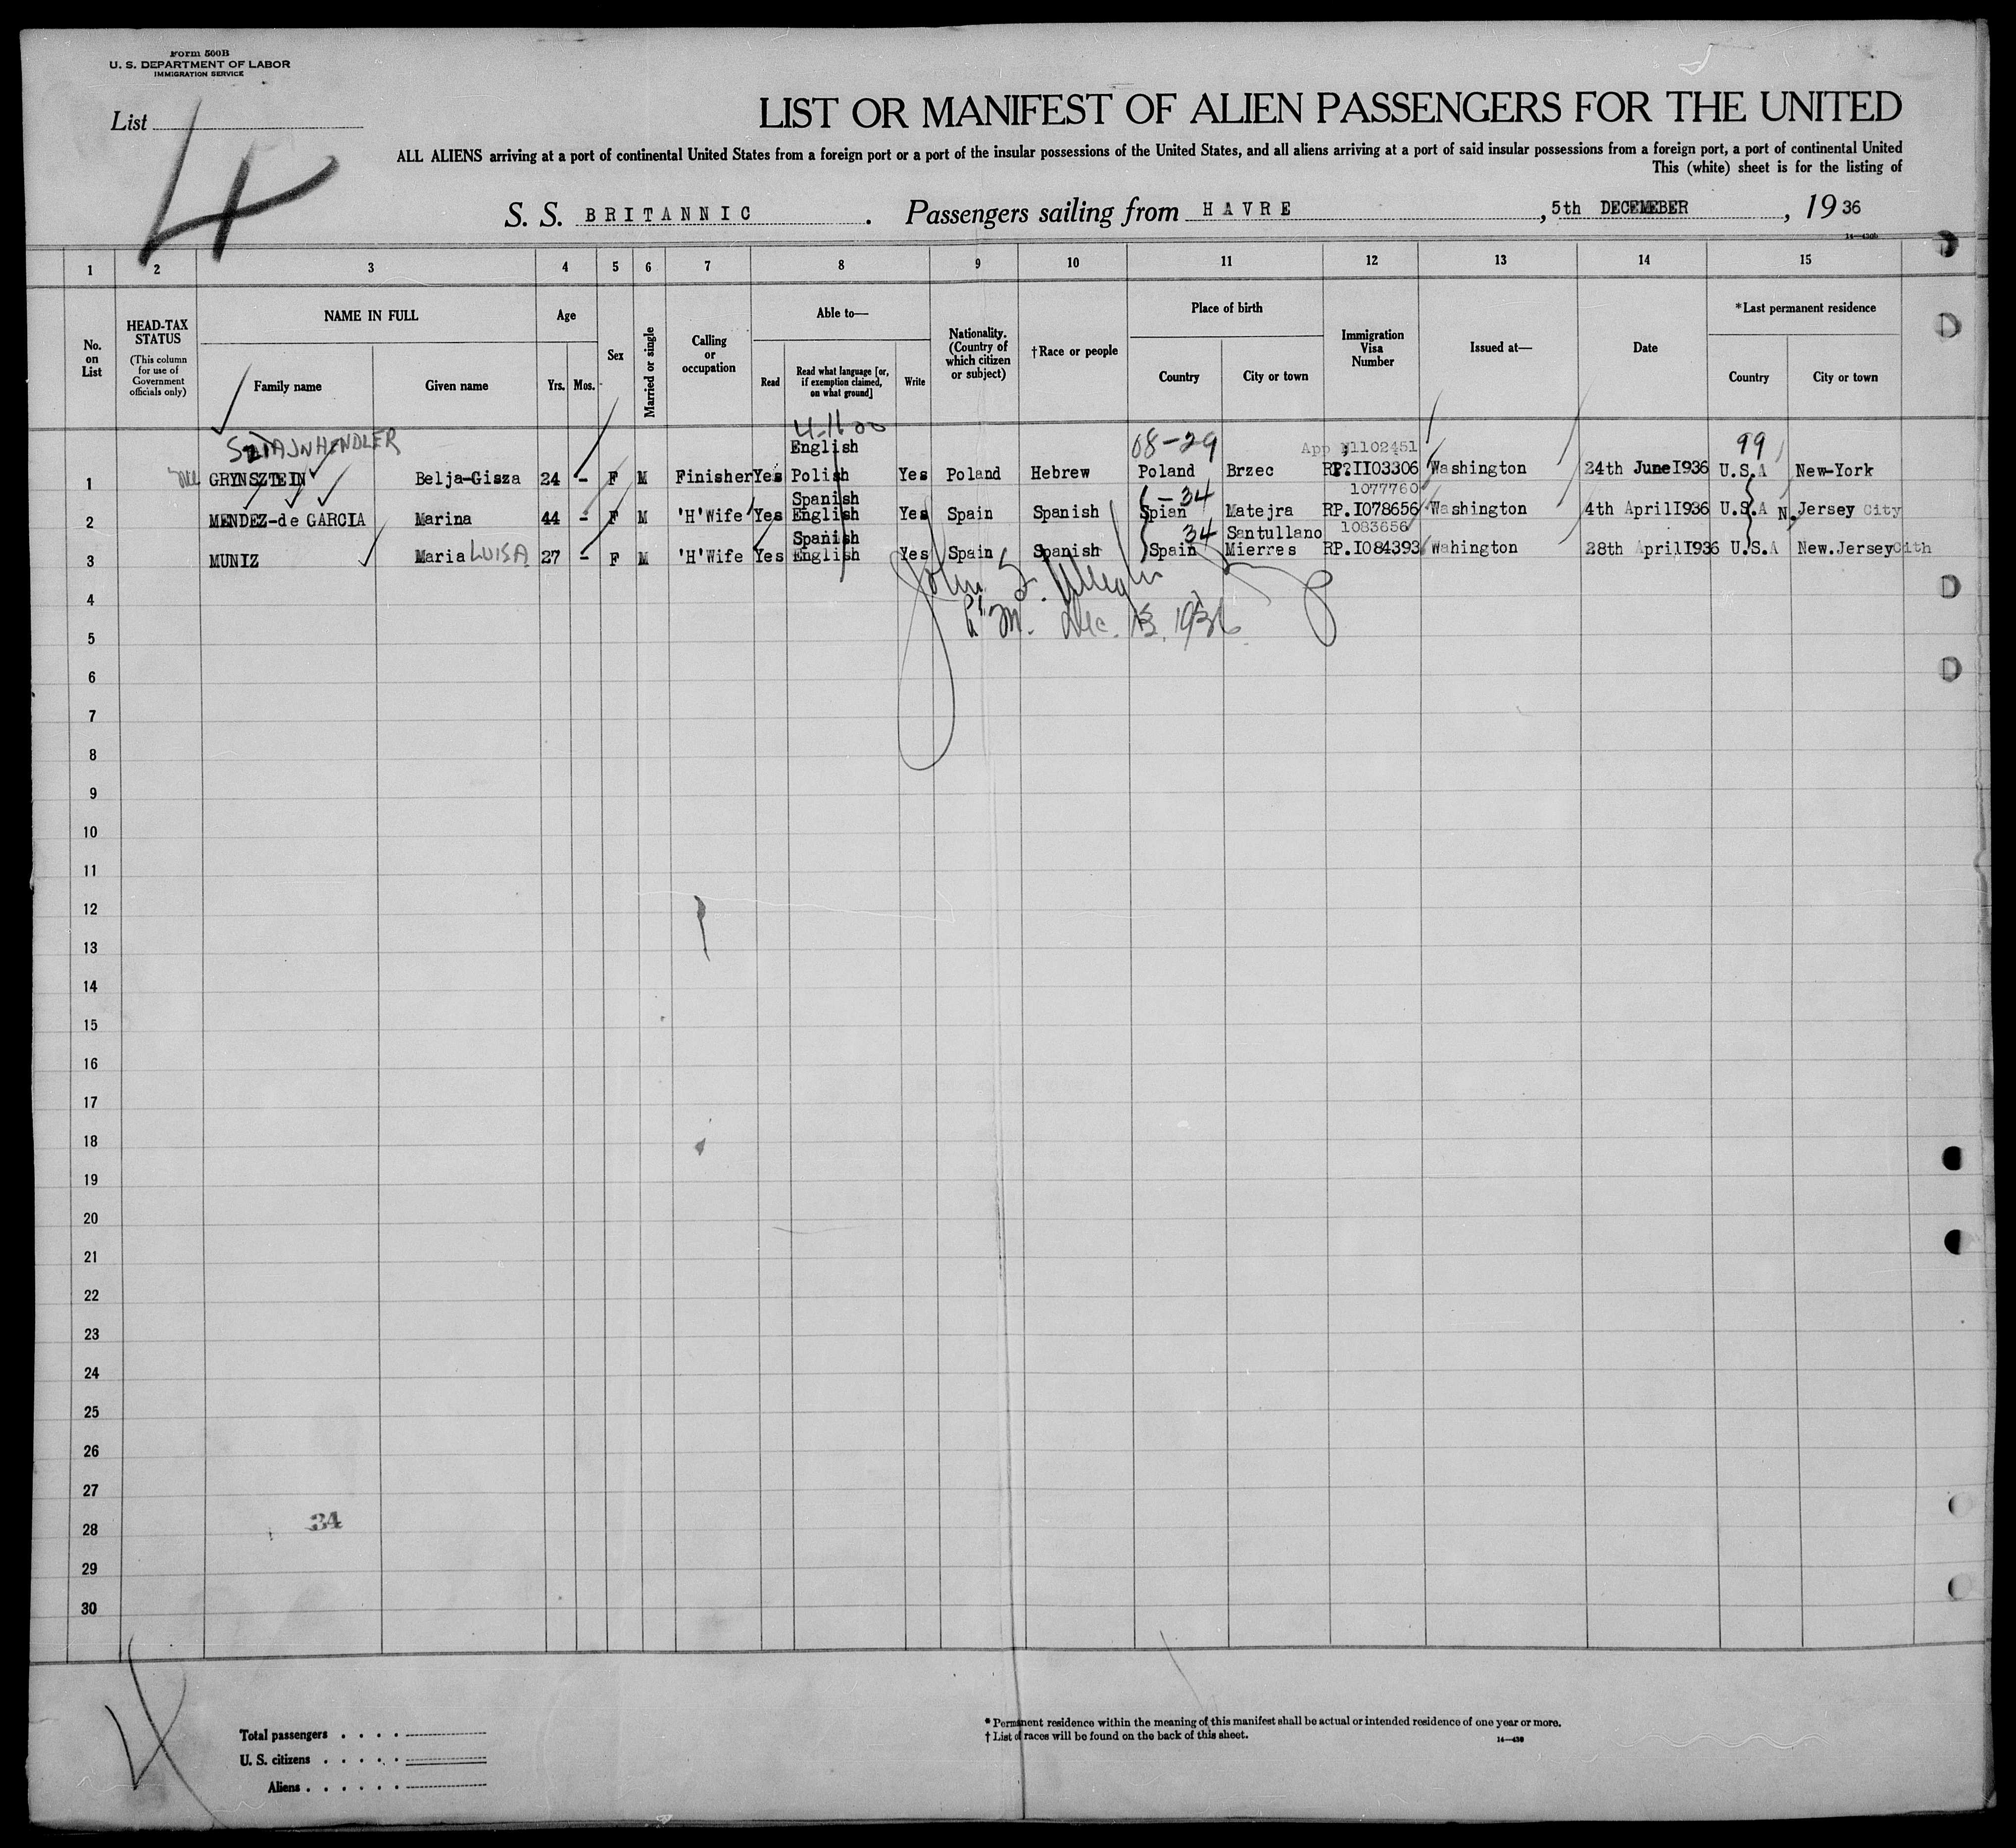 Form 500B
U. S. DEPARTMENT OF LABOR
IMMIGRATION SERVICE
List
4
LIST OR MANIFEST OF ALIEN PASSENGERS FOR THE UNITED
ALL ALIENS arriving at a port of continental United States from a foreign port or a port of the insular possessions of the United States, and all aliens arriving at a port of said insular possessions from a foreign port, a port of continental United
This (white) sheet is for the listing of
S. S. BRITANNIC . Passengers sailing from HAVRE , 5th DECEMEBER , 19 36
14—430b
1 2 3 4 5 6 7 8 9 10 11 12 13 14 15
No. on List
HEAD-TAX STATUS (This column for use of Government officials only)
NAME IN FULL
Family name Given name
Age
Yrs. Mos.
Sex
Married or single
Calling or occupation
Able to—
Read Read what language [or, if exemption claimed, on what ground] Write
Nationality. (Country of which citizen or subject)
†Race or people
Place of birth
Country City or town
Immigration Visa Number
Issued at—
Date
*Last permanent residence
Country City or town
08-29 99
SZTAJNHENDLER English App 1102451
1 GRYNSZTEIN Belja-Gisza 24 - F M Finisher Yes Polish Yes Poland Hebrew Poland Brzec RP.II03306 Washington 24th June I936 U.S.A New-York
Spanish -34 1077760
2 MENDEZ-de GARCIA Marina 44 - F M 'H'Wife Yes English Yes Spain Spanish Spian Matejra RP.I078656 Washington 4th April I936 U.S.A N. Jersey City
Spanish 34 Santullano 1083656
3 MUNIZ Maria LUISA 27 - F M 'H'Wife Yes English Yes Spain Spanish Spain Mierres RP.I084393 Wahington 28th April I936 U.S.A New.Jersey Cith
John
Dec. 13, 1936
4
5
6
7
8
9
10
11
12
13
14
15
16
17
18
19
20
21
22
23
24
25
26
27
28 34
29
30
4
Total passengers . . . .
U. S. citizens . . . . .
Aliens . . . . . .
* Permanent residence within the meaning of this manifest shall be actual or intended residence of one year or more.
† List of races will be found on the back of this sheet.
14—430